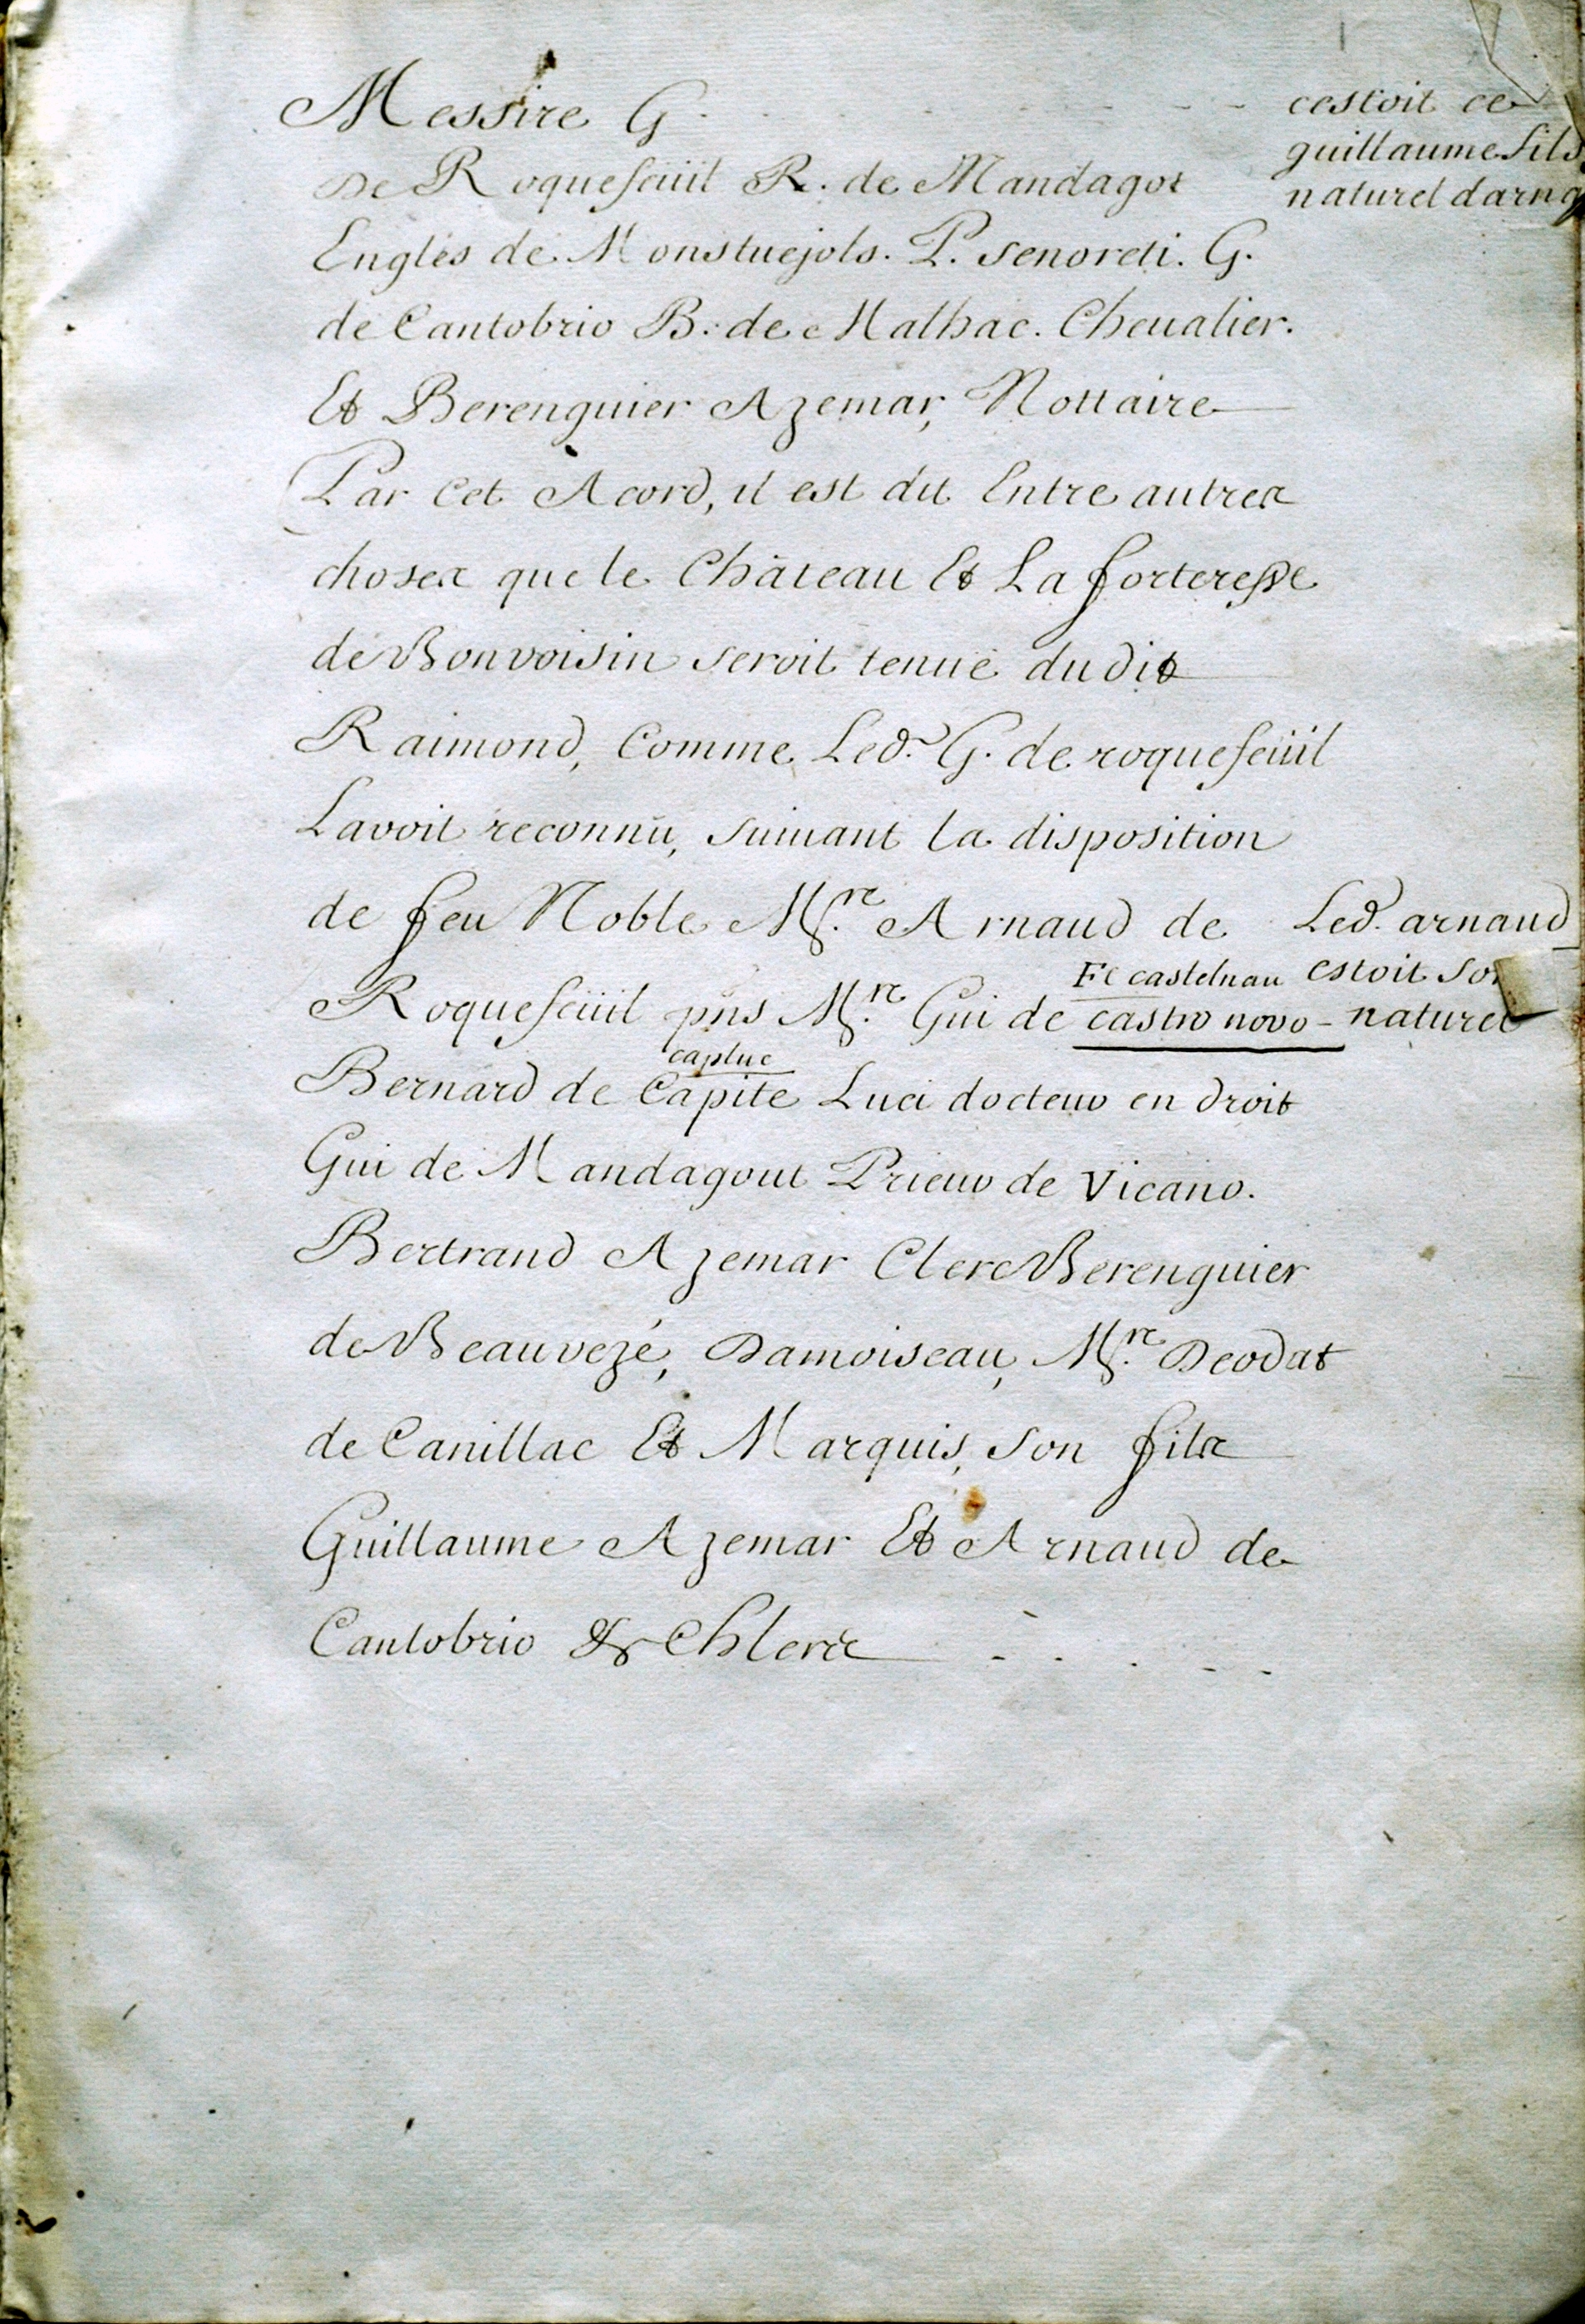 Messire G. - - -
cestoit ce
guillaume fils
naturel darna
De Roquefeüil R. de Mandagot
Englés de Monstuejols. P. Senoreti. G.
de Cantobrio B. de Malhac. Cheualier.
Et Berenguier Azemar, Nottaire
Par Cet Acord, il est dit Entre autres
choses que le Château Et La forteresse
de Bonvoisin seroit tenuë dudit
Raimond, Comme Led. G. de roquefeüil
Lavoit reconnû, suiuant la disposition
de feu Noble M.re Arnaud de
Led. arnaud
estoit
naturel
Roquefeüil pñs M.re Gui de castro novo -
castelnau
capluc
Bernard de Capite Luci docteur en droit
Gui de Mandagout Prieur de Vicano.
Bertrand Azemar Clerc Berenguier
de Beauvezé, Damoiseau, M.re Deodat
de Canillac Et Marquis, son fils
Guillaume Azemar Et Arnaud de
Cantobrio & - . . - -